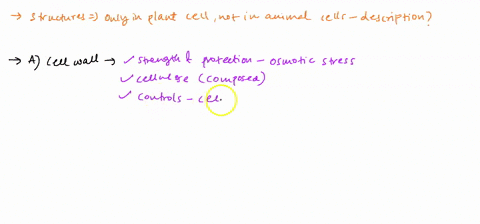 → structures ⇒ only in plant cell, not in animal cells - description?
→ A) cell wall → ✓ strength & protection - osmotic stress
✓ cellulose (composed)
✓ controls - cel